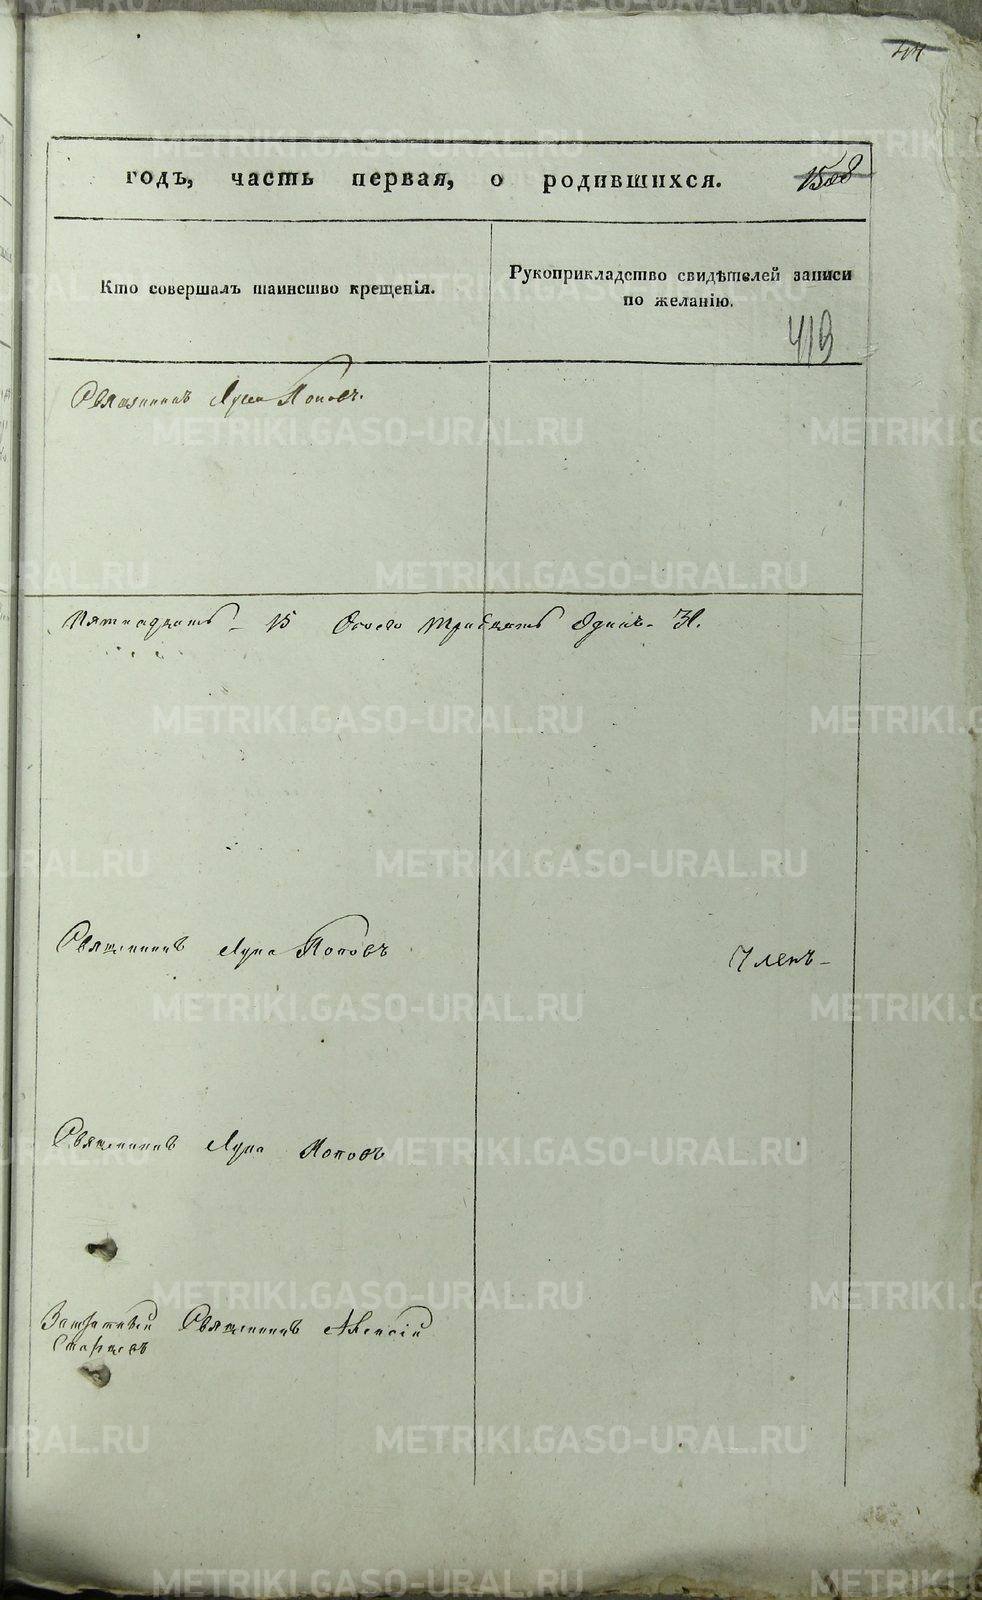 годъ, часть первая, о родившихся.
Кто совершалъ таинство крещенія.
Рукоприкладство свидѣтелей записи
по желанію.
419
Священникъ Лука Поповъ.
Пятнадцать - 15 Всего тридцать одинъ - 31.
Священникъ Лука Поповъ
Членъ -
Священникъ Лука Поповъ
Священникъ Алексій
METRIKI.GASO-URAL.RU